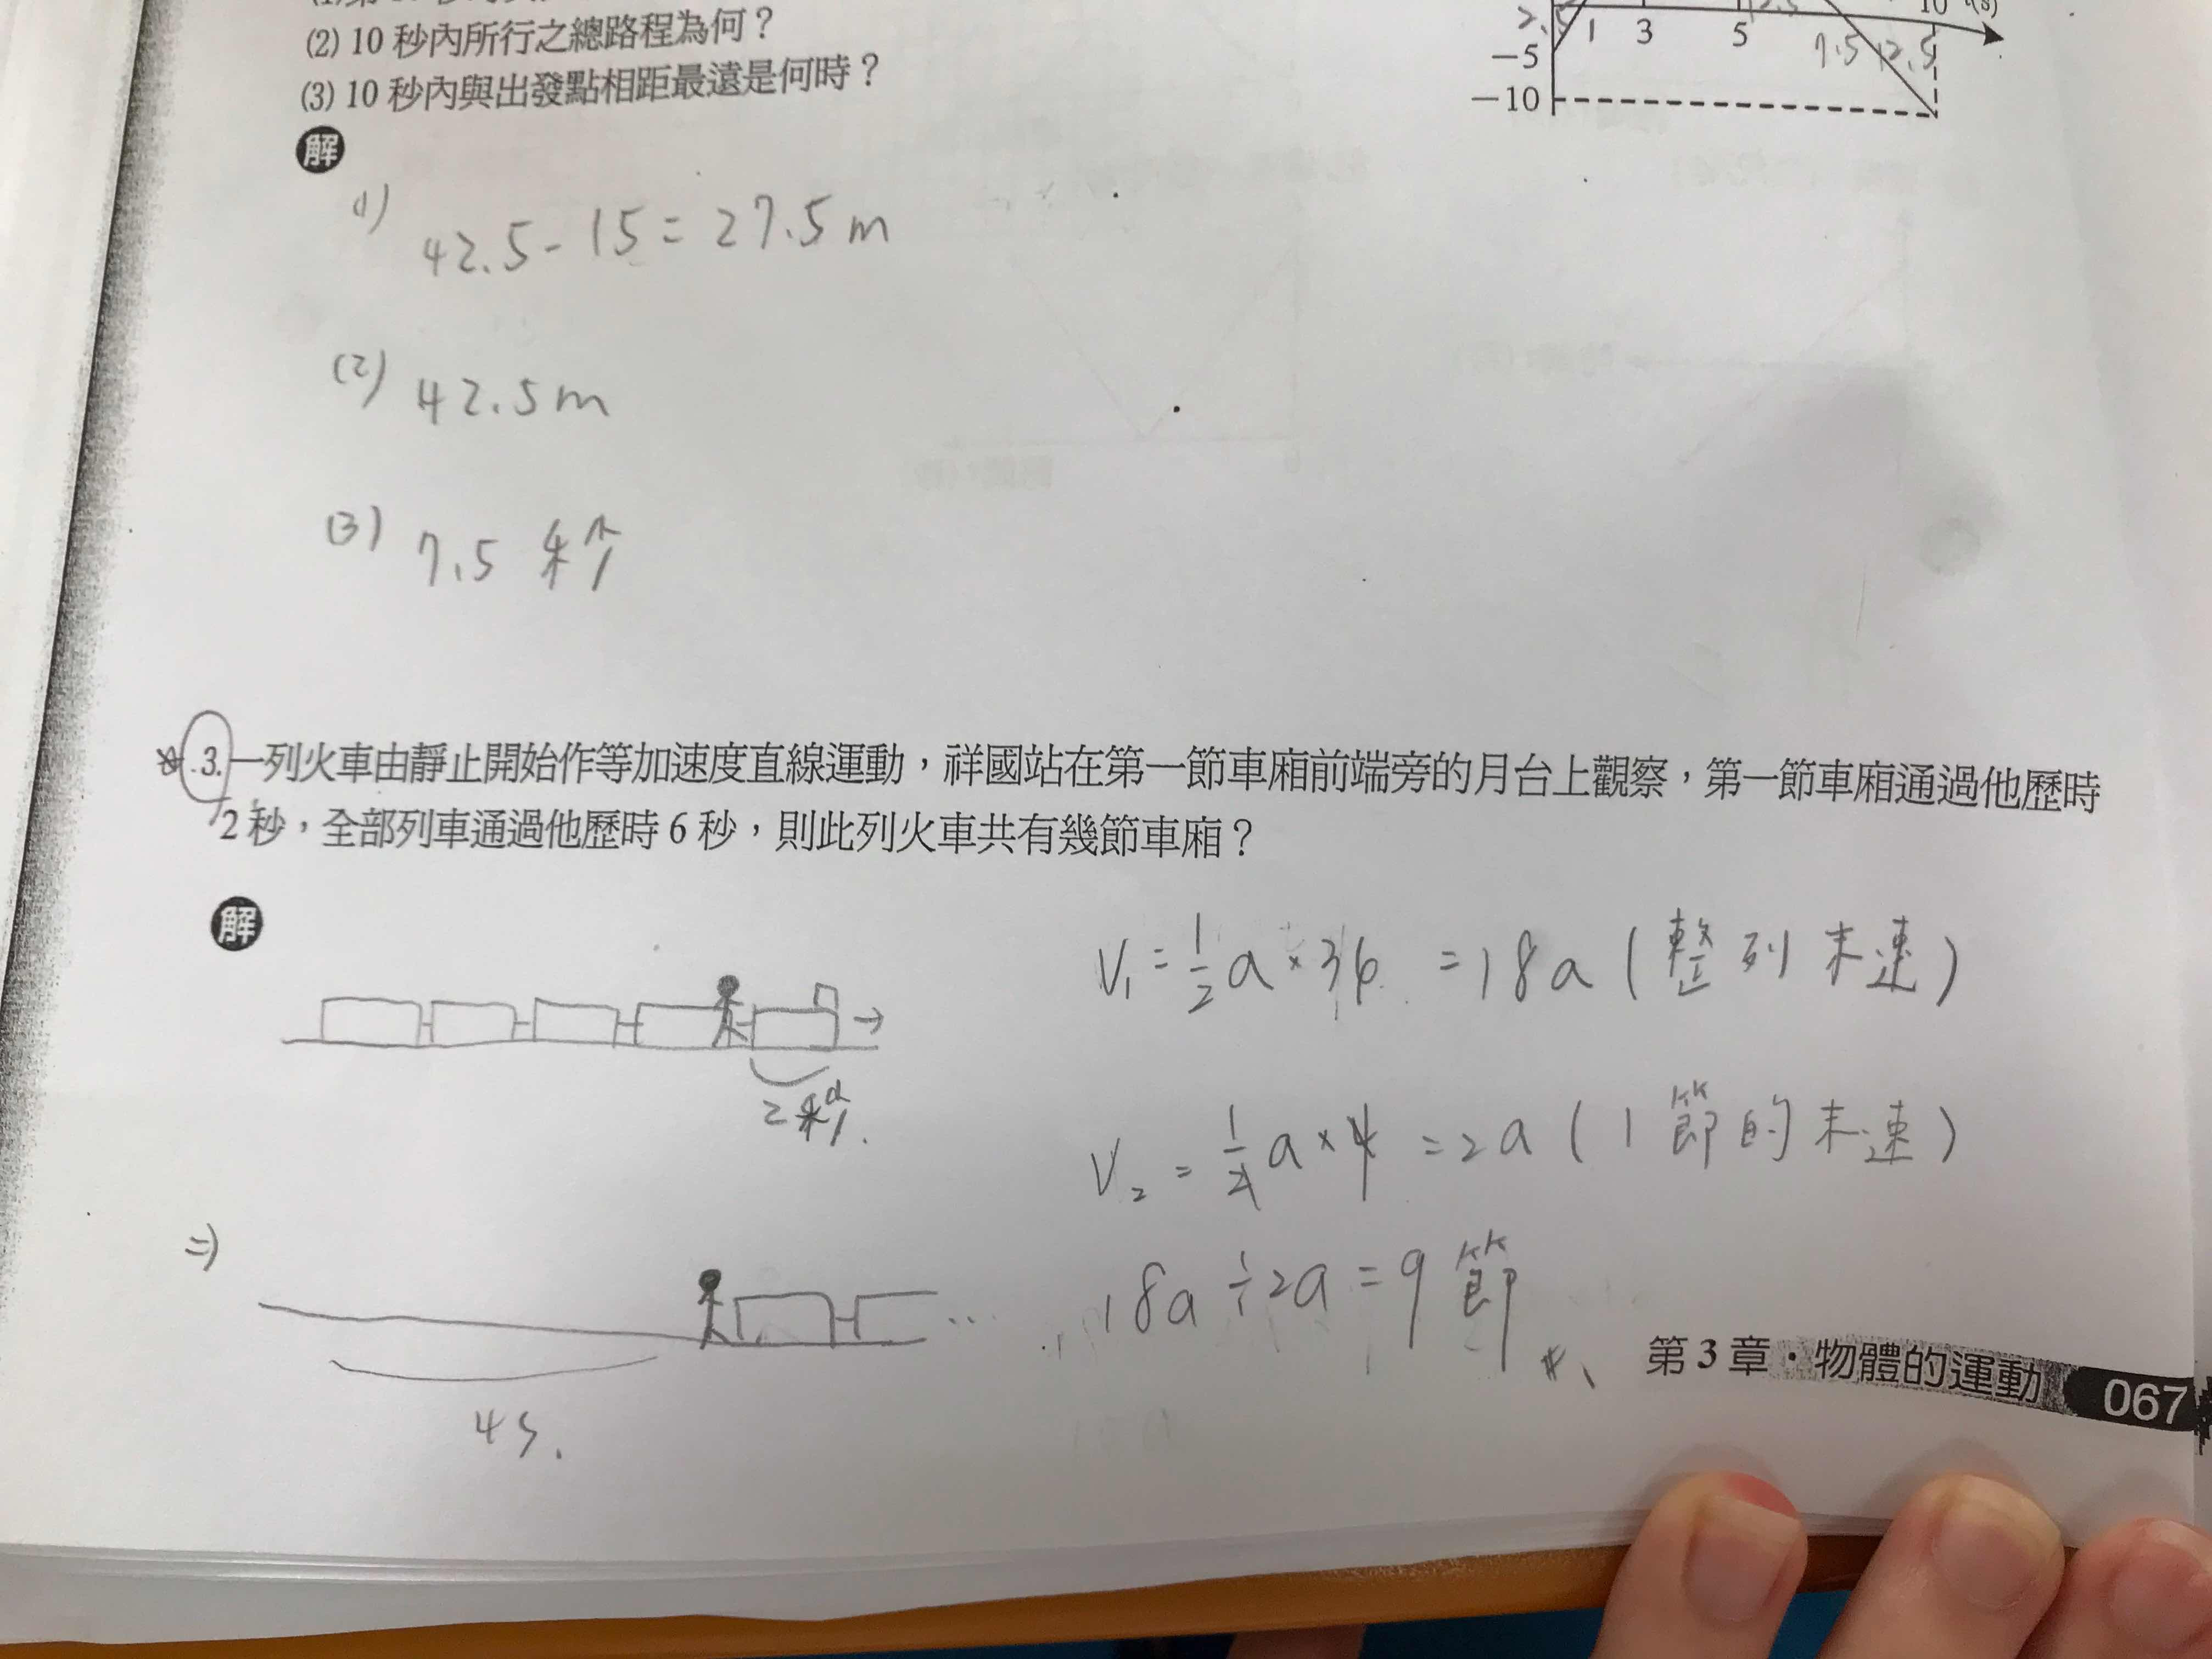 (2) 10 秒內所行之總路程為何？
(3) 10 秒內與出發點相距最遠是何時？
1 3 5 10
7.5 12.5
−5
−10
解
(1) 42.5 - 15 = 27.5 m
(2) 42.5 m
(3) 7.5 秒
3. 一列火車由靜止開始作等加速度直線運動，祥國站在第一節車廂前端旁的月台上觀察，第一節車廂通過他歷時
2 秒，全部列車通過他歷時 6 秒，則此列火車共有幾節車廂？
解
2 秒.
V₁ = 1/2 a × 36 = 18a (整列末速)
V₂ = 1/2 a × 4 = 2a (1 節的末速)
⇒)
4s.
...
18a ÷ 2a = 9 節
第 3 章・物體的運動 067